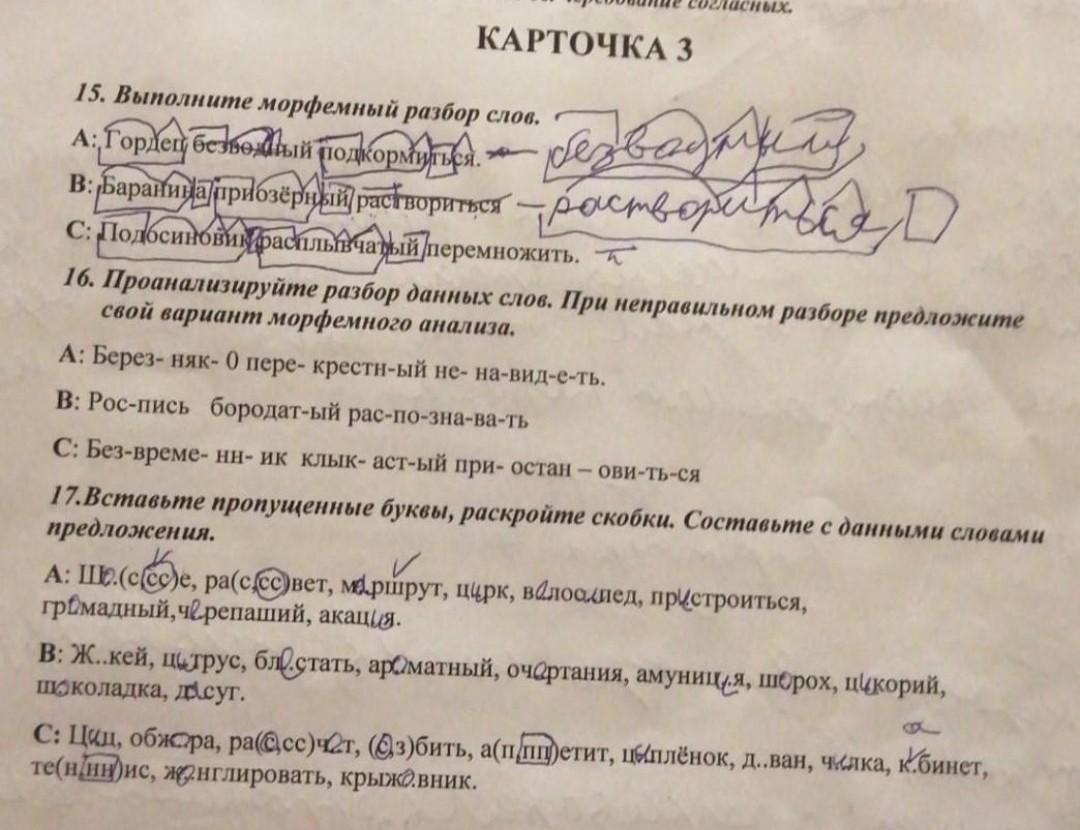 чередование согласных.
КАРТОЧКА 3
15. Выполните морфемный разбор слов.
А: Гордец безводный подкормиться. — безводный,
В: Баранина приозёрный раствориться — раствориться
С: Подосиновик расплывчатый перемножить.
16. Проанализируйте разбор данных слов. При неправильном разборе предложите
свой вариант морфемного анализа.
А: Берез- няк- 0 пере- крестн-ый не- на-вид-е-ть.
В: Рос-пись бородат-ый рас-по-зна-ва-ть
С: Без-време- нн- ик клык- аст-ый при- остан – ови-ть-ся
17.Вставьте пропущенные буквы, раскройте скобки. Составьте с данными словами
предложения.
А: Шо.(с,сс)е, ра(с,сс)вет, маршрут, цирк, велосипед, пристроиться,
громадный,черепаший, акация.
В: Ж..кей, цитрус, бле.стать, ароматный, очертания, амуниция, шорох, цикорий,
шоколадка, досуг.
С: Циц, обжора, ра(с,сс)чет, (с,з)бить, а(п,пп)етит, цыплёнок, д..ван, чилка, к.бинет,
а
те(н,нн)ис, жонглировать, крыжо.вник.